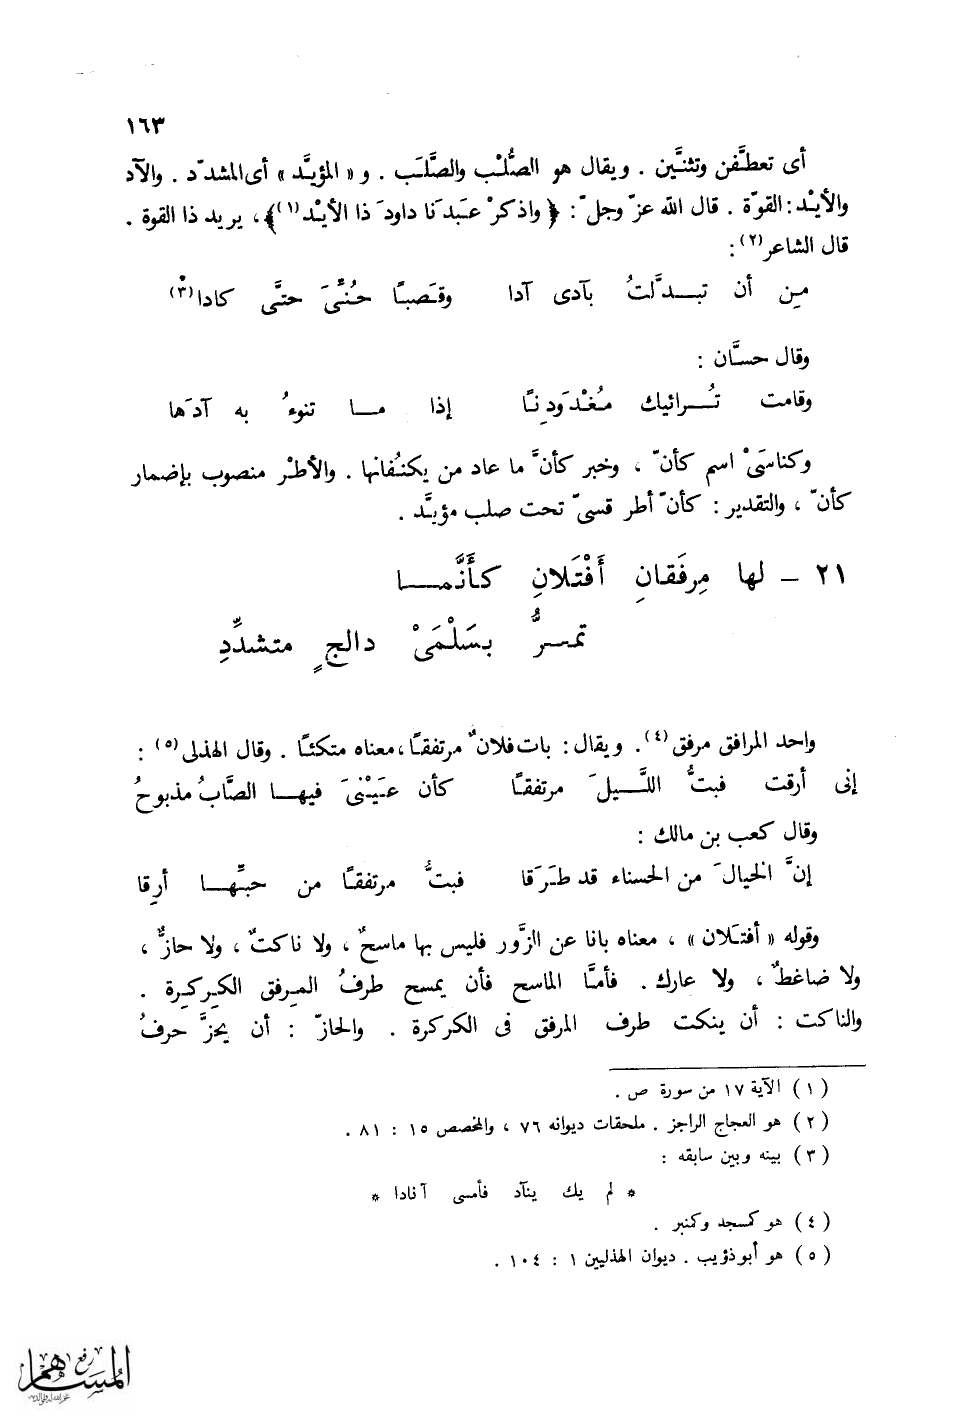 ١٦٣
أى تعطَّفن وتثنَّين . ويقال هو الصُّلْب والصَّلَب . و « المؤيَّد » أى المشدّد . والآد
والأيْد : القوّة . قال الله عزّ وجلّ : ﴿ واذكرْ عبدَنا داودَ ذا الأيْد (١) ﴾ ، يريد ذا القوة .
قال الشاعر (٢) :
مِن أن تبـدَّلتُ بآدى آدا وقَصبًا حُنِّىَ حتَّى كادا (٣)
وقال حسَّان :
وقامت تُـرائيك مُغْدَودِنًا إذا مـا تنوءُ به آدَها
وكناسَىْ اسم كأنّ ، وخبر كأنَّ ما عاد من يكنُفانها . والأطْر منصوب بإضمار
كأنّ ، والتقدير : كأنّ أطر قسىّ تحت صلب مؤيَّد .
٢١ – لها مِرفَقانِ أَفْتَلانِ كأنَّمـا
تمـرُّ بسَلْمَىْ دالجٍ متشدِّدِ
واحد المرافق مرفق (٤) . ويقال : بات فلانٌ مرتفقًا ، معناه متكئًا . وقال الهذلى (٥) :
إنى أرقت فبتُّ اللَّـيلَ مرتفقًا كأن عيَنْىَ فيهـا الصَّابُ مذبوحُ
وقال كعب بن مالك :
إنَّ الخيالَ من الحسناء قد طرَقا فبتُّ مرتفقًا من حبِّهـا أرِقا
وقوله « أفتَلان » ، معناه بانا عن الزَّور فليس بها ماسحٌ ، ولا ناكتٌ ، ولا حازٌّ ،
ولا ضاغطٌ ، ولا عارك . فأمَّا الماسح فأن يمسح طرفُ المِرفق الكِركِرة .
والناكت : أن ينكت طرف المرفق فى الكركرة . والحازّ : أن يحزَّ حرفُ
(١) الآية ١٧ من سورة ص .
(٢) هو العجاج الراجز . ملحقات ديوانه ٧٦ ، والمخصص ١٥ : ٨١ .
(٣) بينه وبين سابقه :
* لم يك ينآد فأمسى آنادا *
(٤) هو كمسجد وكمنبر .
(٥) هو أبو ذؤيب . ديوان الهذليين ١ : ١٠٤ .
رفع